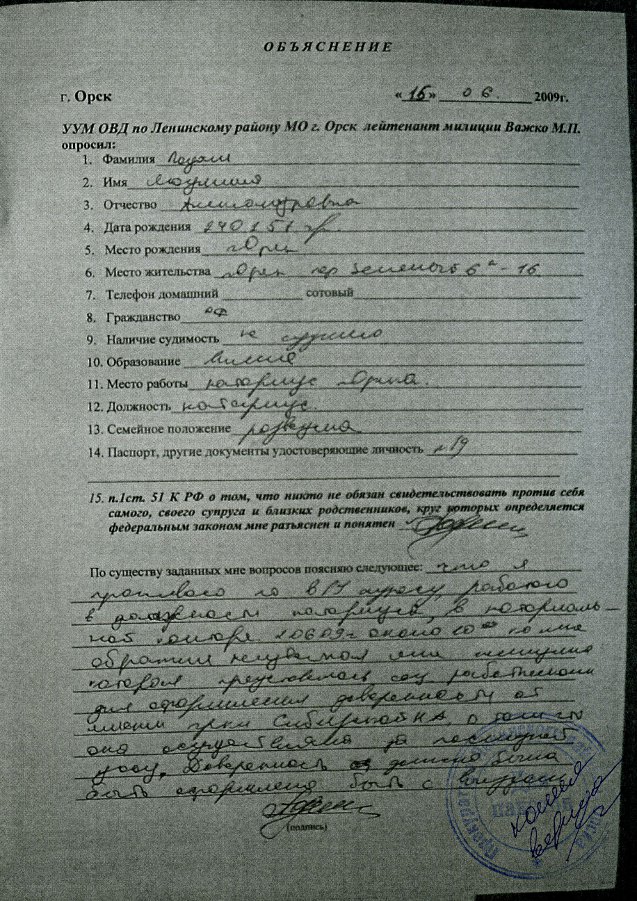 ОБЪЯСНЕНИЕ
г. Орск «16» 06. 2009г.
УУМ ОВД по Ленинскому району МО г. Орск лейтенант милиции Важко М.П.
опросил:
1. Фамилия
2. Имя Людмила
3. Отчество Александровна
4. Дата рождения 240151 г.р.
5. Место рождения г Орск
6. Место жительства г Орск пер Зеленый 6а-16
7. Телефон домашний сотовый
8. Гражданство РФ
9. Наличие судимость не судима
10. Образование высшее
11. Место работы нотариус г Орска.
12. Должность нотариус.
13. Семейное положение разведена
14. Паспорт, другие документы удостоверяющие личность
15. п.1ст. 51 К РФ о том, что никто не обязан свидетельствовать против себя
самого, своего супруга и близких родственников, круг которых определяется
федеральным законом мне разъяснен и понятен
По существу заданных мне вопросов поясняю следующее: что я
проживаю по в/у адресу, работаю
в должности нотариуса, в нотариаль-
ной конторе. около 10 00 ко мне
обратилась неизвестная мне женщина
которая представилась соц работником
для оформления доверенности от
имени гр-ки
она осуществляла за последней
уход. Доверенность должна была
быть оформлена быть с выездом
(подпись)
копия
верна